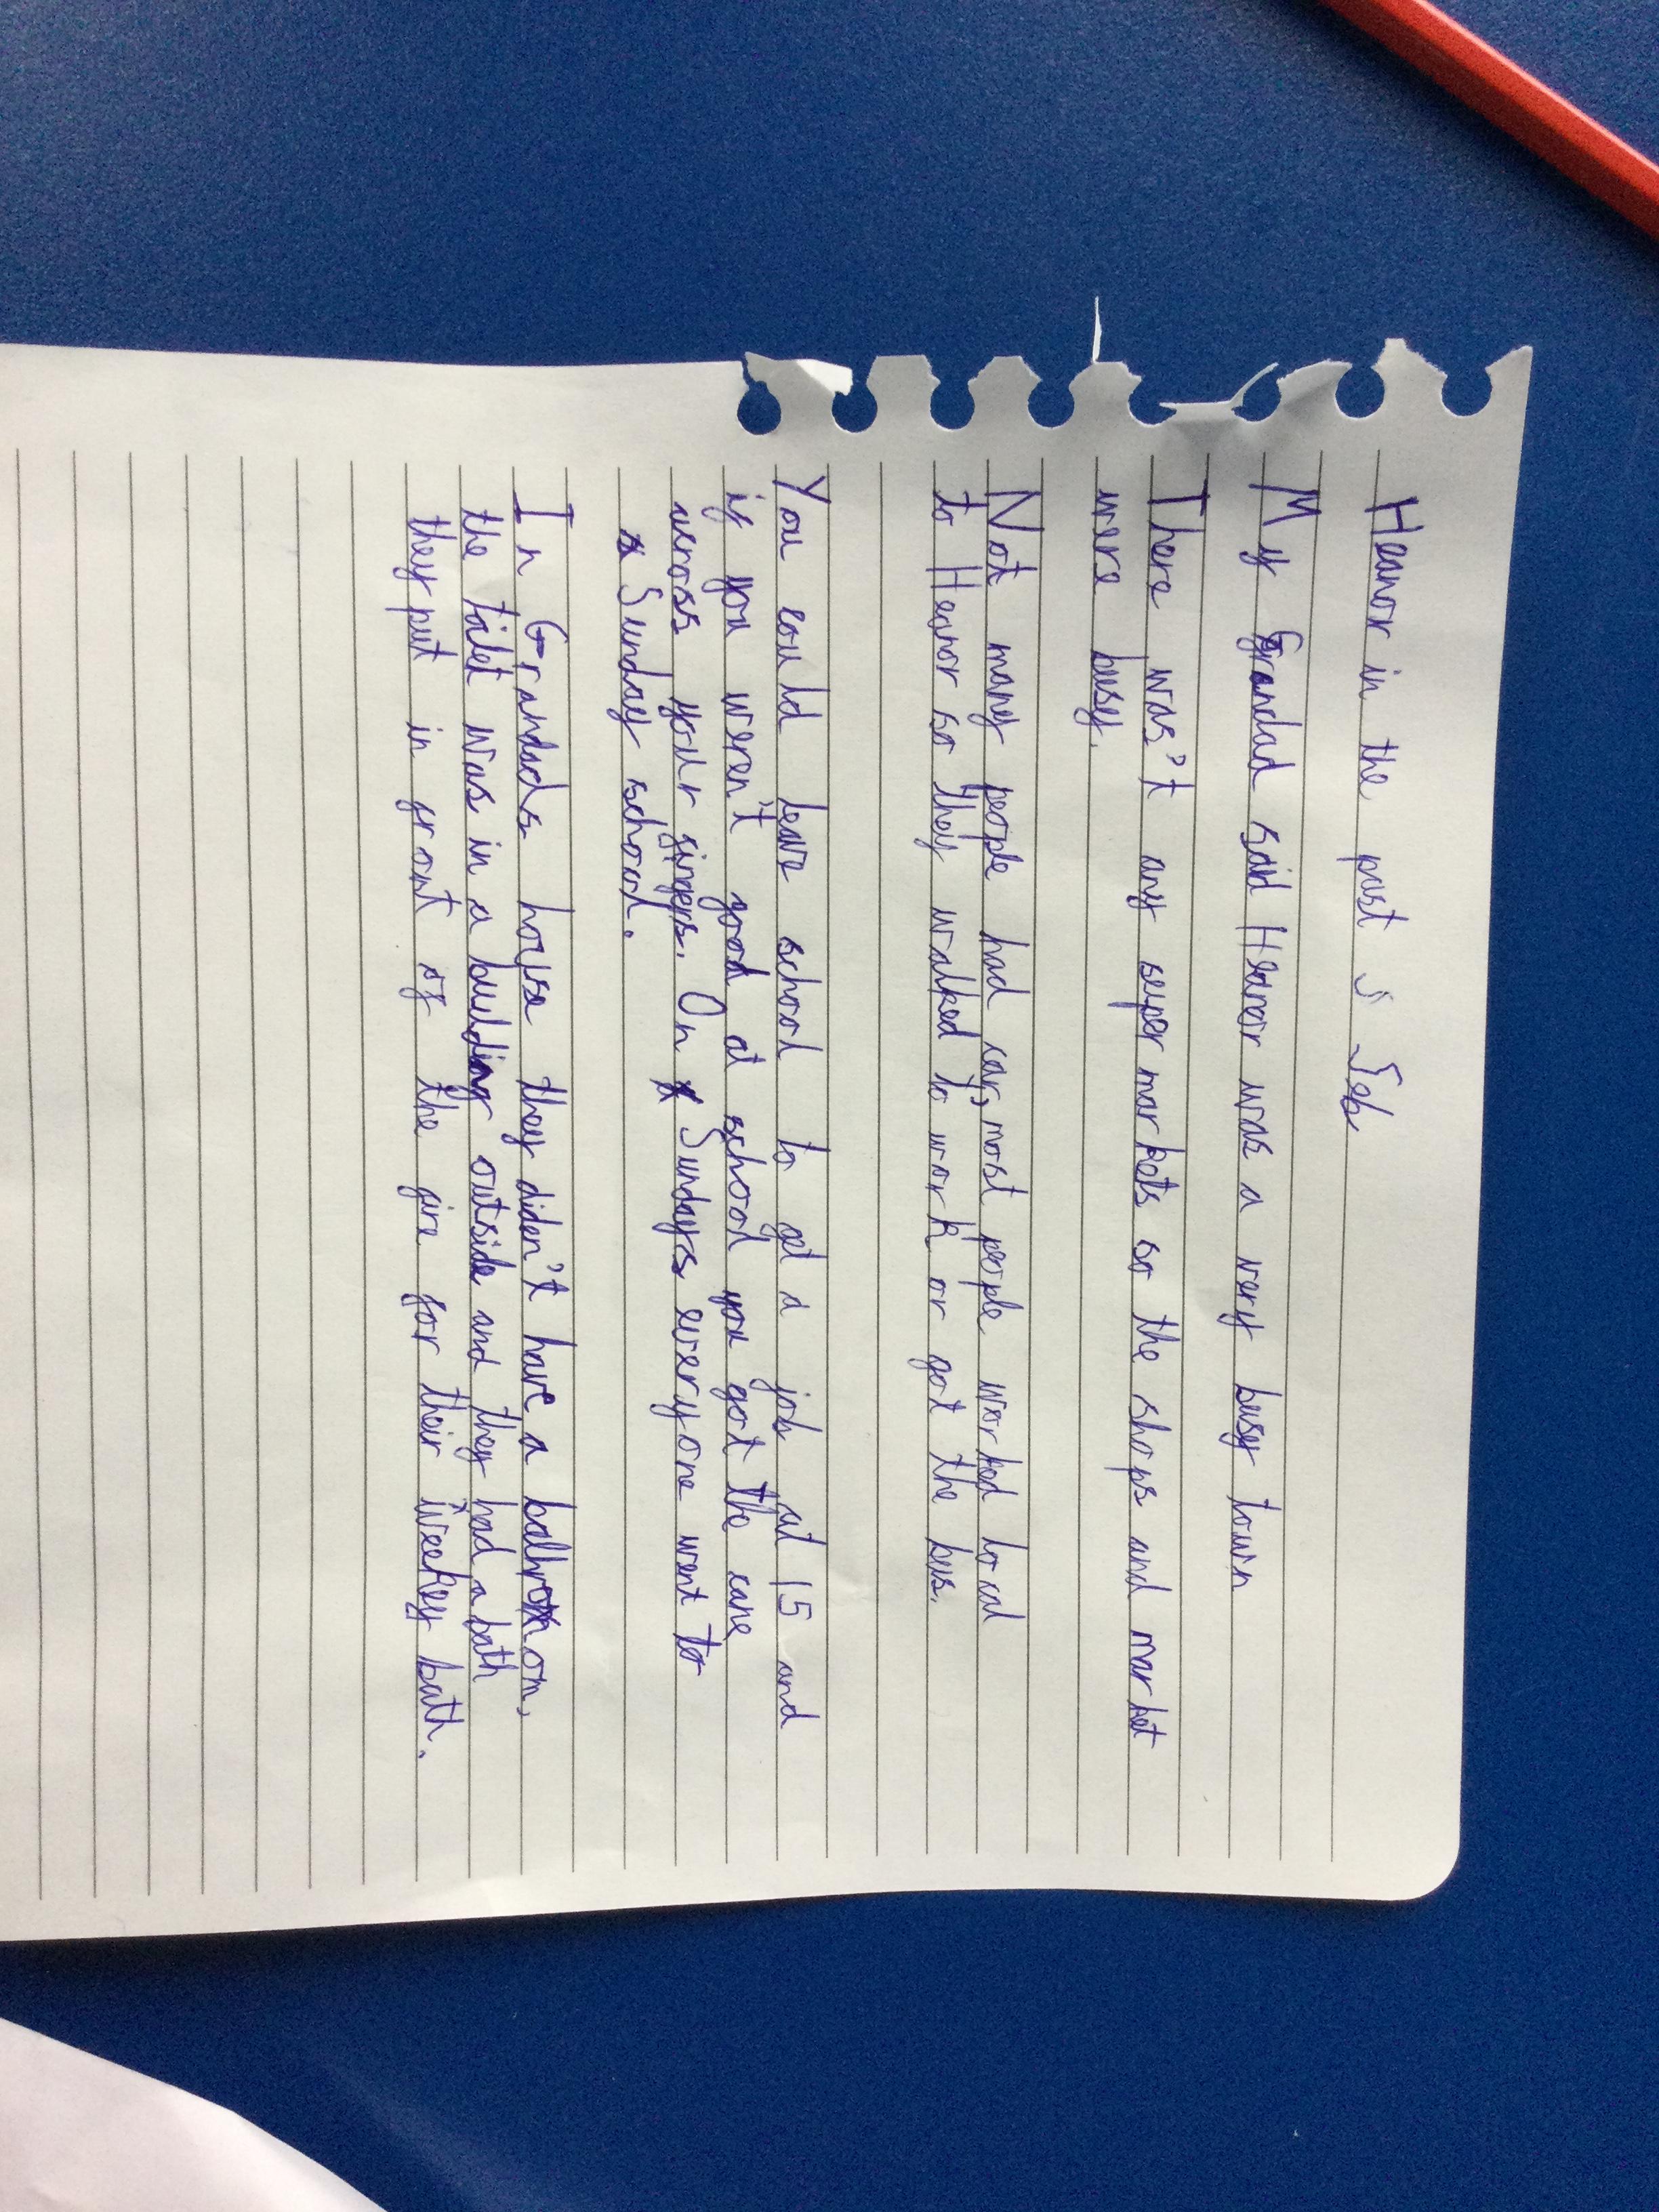 Heanor in the past Seb
My Grandad said Heanor was a very busy town
There was't any super markets so the shops and market
were busy.
Not many people had car, most people worked local
to Heanor so they walked to work or got the bus.
You could leave school to get a job at 15 and
if you weren't good at school you got the cane
across your fingers. On Sundays everyone went to
Sunday school.
In Grandads house they diden't have a bathroom,
the toilet was in a building outside and they had a bath
they put in front of the fire for their weekey bath.